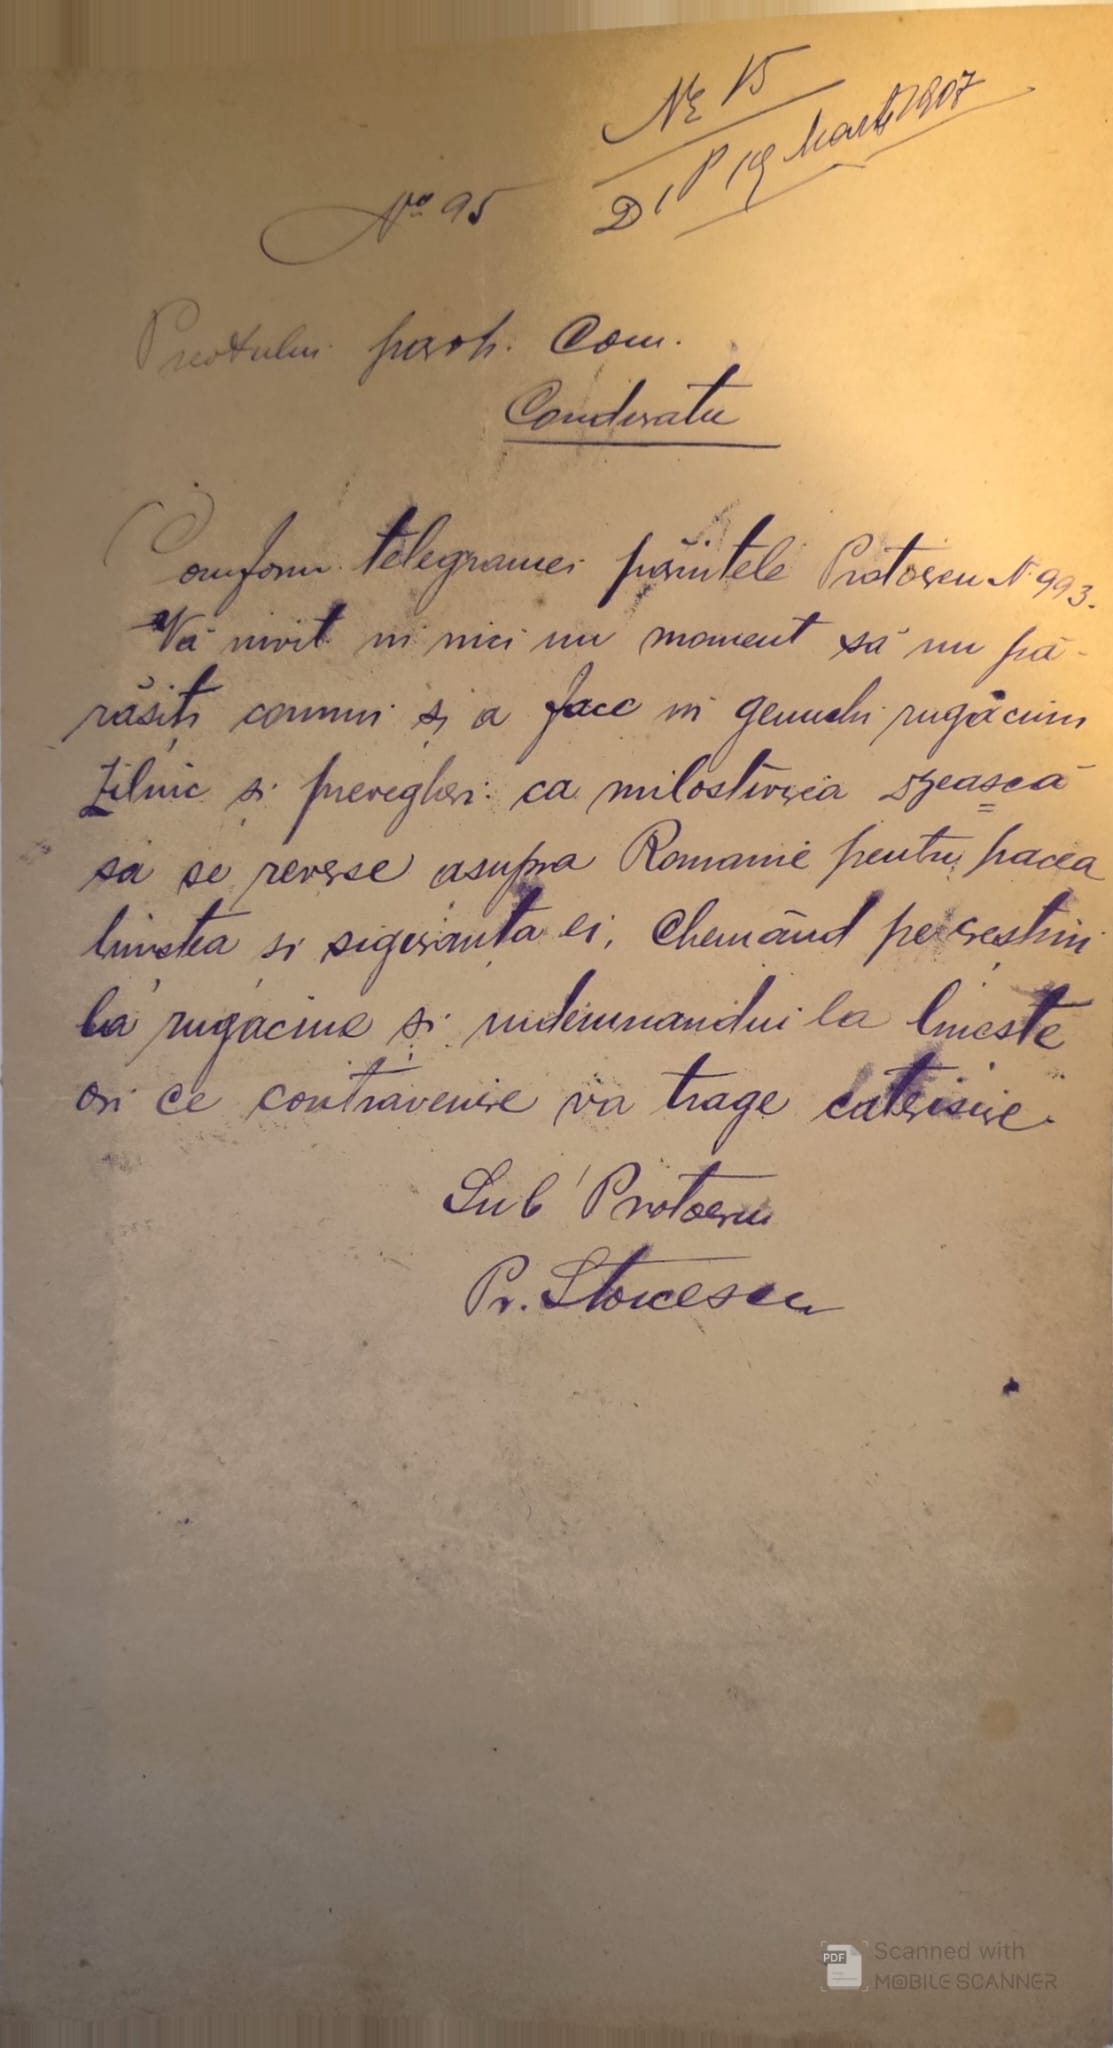 No 15
D. P. 19 Martie 1907
No 95
Preotului paroh. Com.
Conderatu
Conform telegramei părintele Protoereu N. 993.
Vă invit in nici un moment să nu pă-
răsiți comuni și a face in genuchi rugăciuni
zilnic si prevegheri ca milostivirea
să se reverse asupra Romanie pentru pacea
liniștea si siguranta ei, Chemănd pe creștini
la rugăciune și indemnandui la linieste
ori ce contravenire va trage caterisire.
Sub Protoereu
Pr. Stoicescu
Scanned with
MOBILE SCANNER
PDF